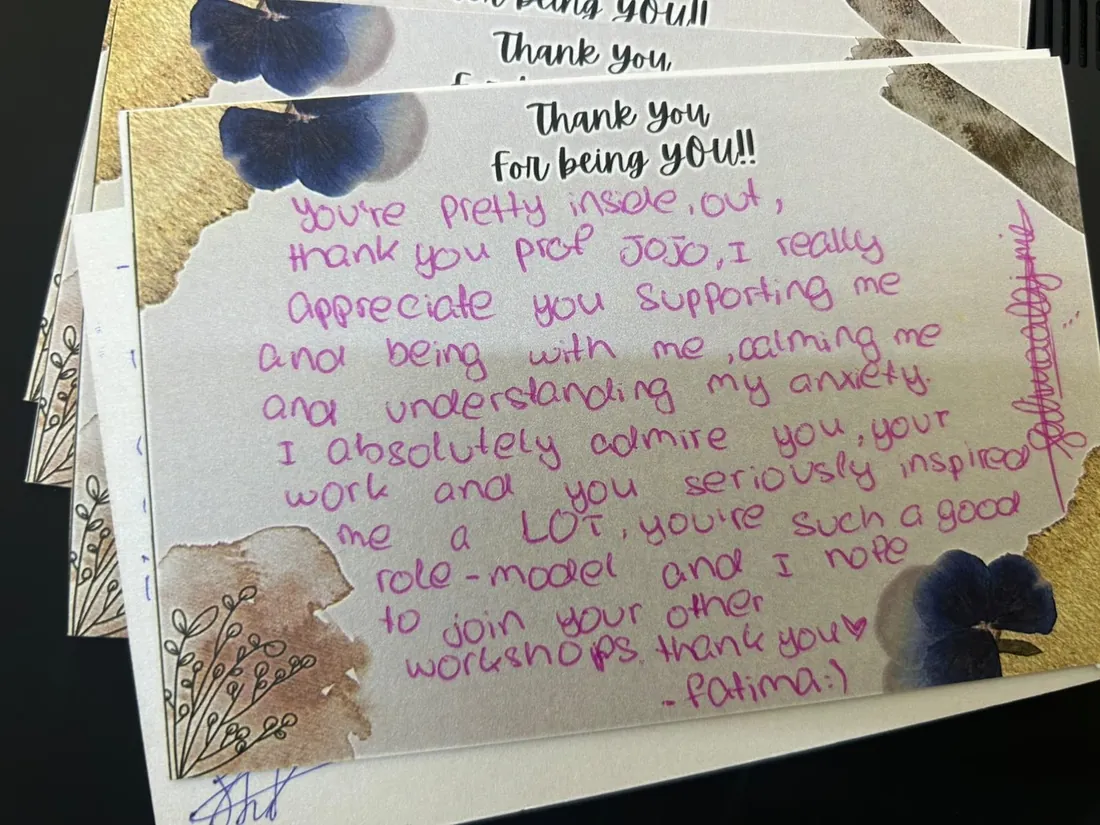 for being YOU!!
Thank You,
Thank You
For being YOU!!
You're pretty inside, out,
thank you prof JOJO, I really
appreciate you supporting me
and being with me, calming me
and understanding my anxiety.
I absolutely admire you, your
work and you seriously inspired
me a LOT, you're such a good
role-model and I hope
to join your other
workshops. thank you♥
- fatima:)